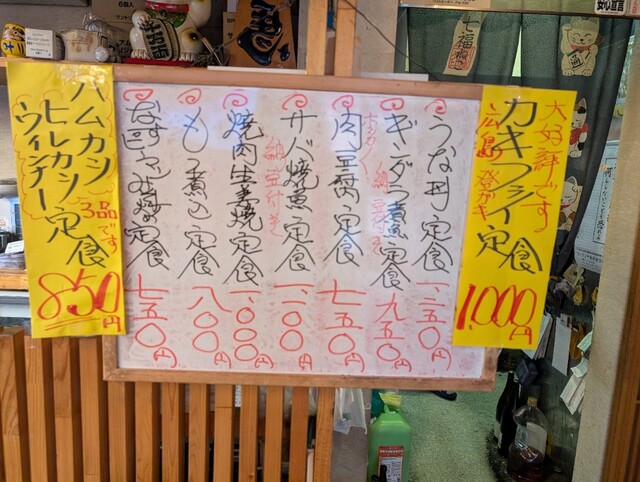 大好評です
カキフライ定食
広島産ガキ
1,000円
うな丼定食 一、二五〇円
ギンダラ煮魚定食 九五〇円
納豆付き
肉豆腐定食 七五〇円
サバ焼魚定食 一、一〇〇円
納豆付き
焼肉生姜焼定食 一、〇〇〇円
もつ煮込定食 八〇〇円
なすピーマン味噌炒め定食 七五〇円
ハムカツ
ヒレカツ 定食
ウィンナー
3品です
850円
七福